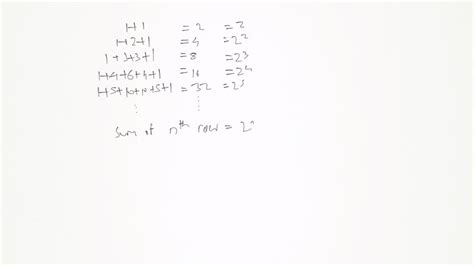 1+1 = 2 = 2
1+2+1 = 4 = 2²
1+3+3+1 = 8 = 2³
1+4+6+4+1 = 16 = 2⁴
1+5+10+10+5+1 = 32 = 2⁵
⋮ ⋮
Sum of nᵗʰ row = 2ⁿ